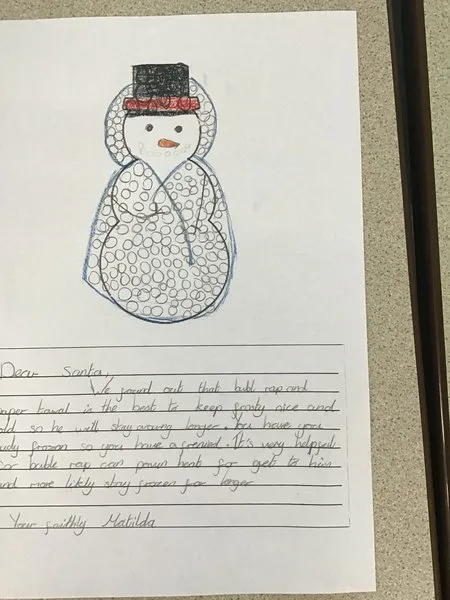 Dear Santa,
We found out that bubl rap and
paper towal is the best to keep frosty nice and
old so he will stay arowng longer. you have you
udy frozan so you have a frenned. It's very helpfull
for buble rap can prown heat for get to him
and more likly stay frozen for longer
Your faithly Matilda